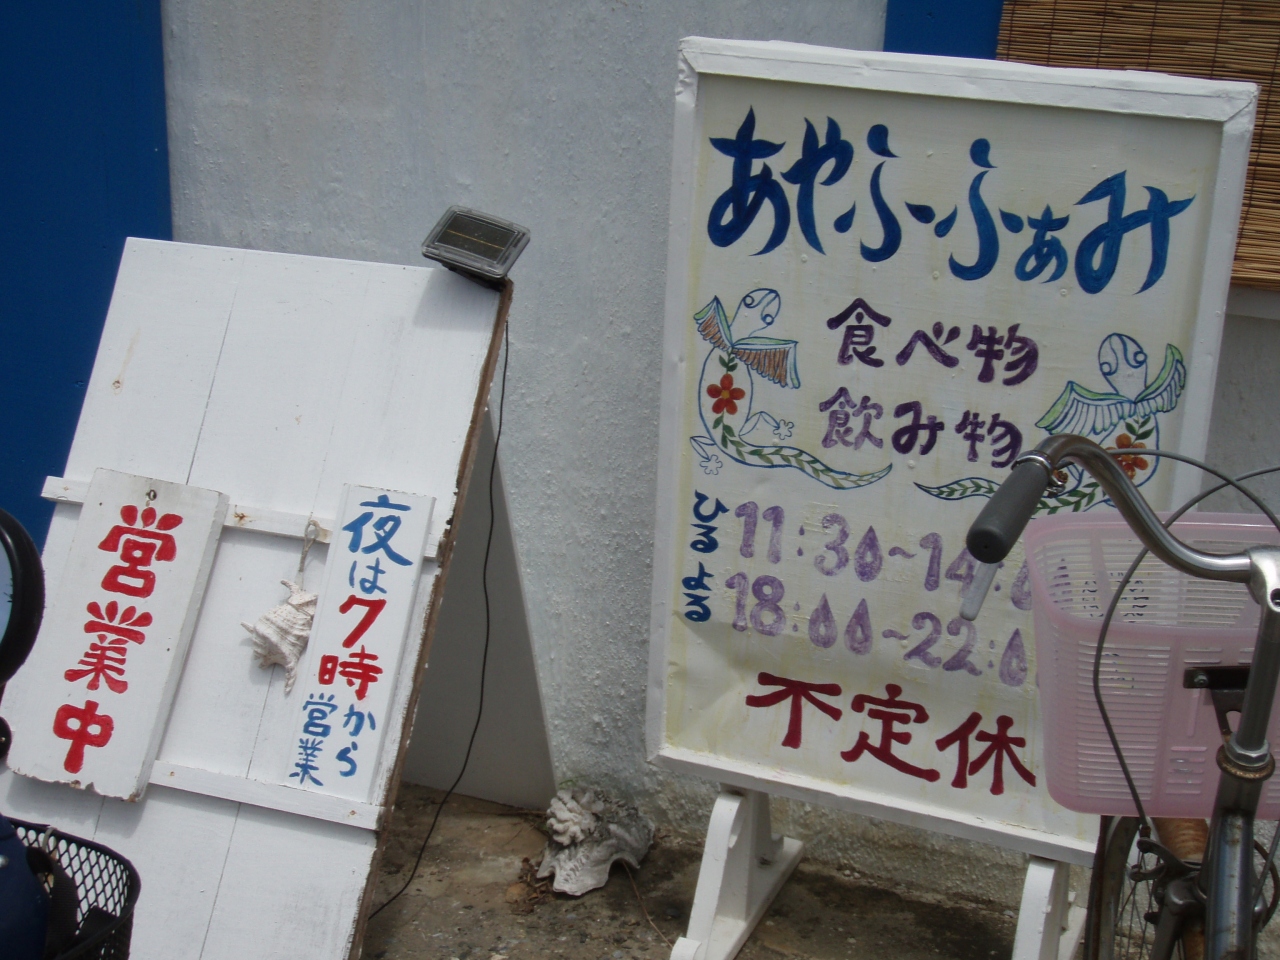 営業中
夜は7時から
営業
あやふふぁみ
食べ物
飲み物
ひる 11:30~14:0
よる 18:00~22:0
不定休